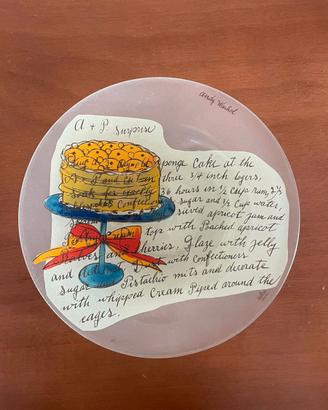 andy Warhol
A + P Surprise
sponge Cake at the
A & P and Cut in thru 3/4 inch layers,
Soak for exactly 36 hours in 1/2 cup rum, 2/3
cup Confectioners sugar and 1/2 cup water,
sieved apricot jam and
top with Poached apricot
and cherries. Glaze with jelly
and with Confectioners
Sugar Pistachio nuts and decorate
with whipped Cream Piped around the
eages.